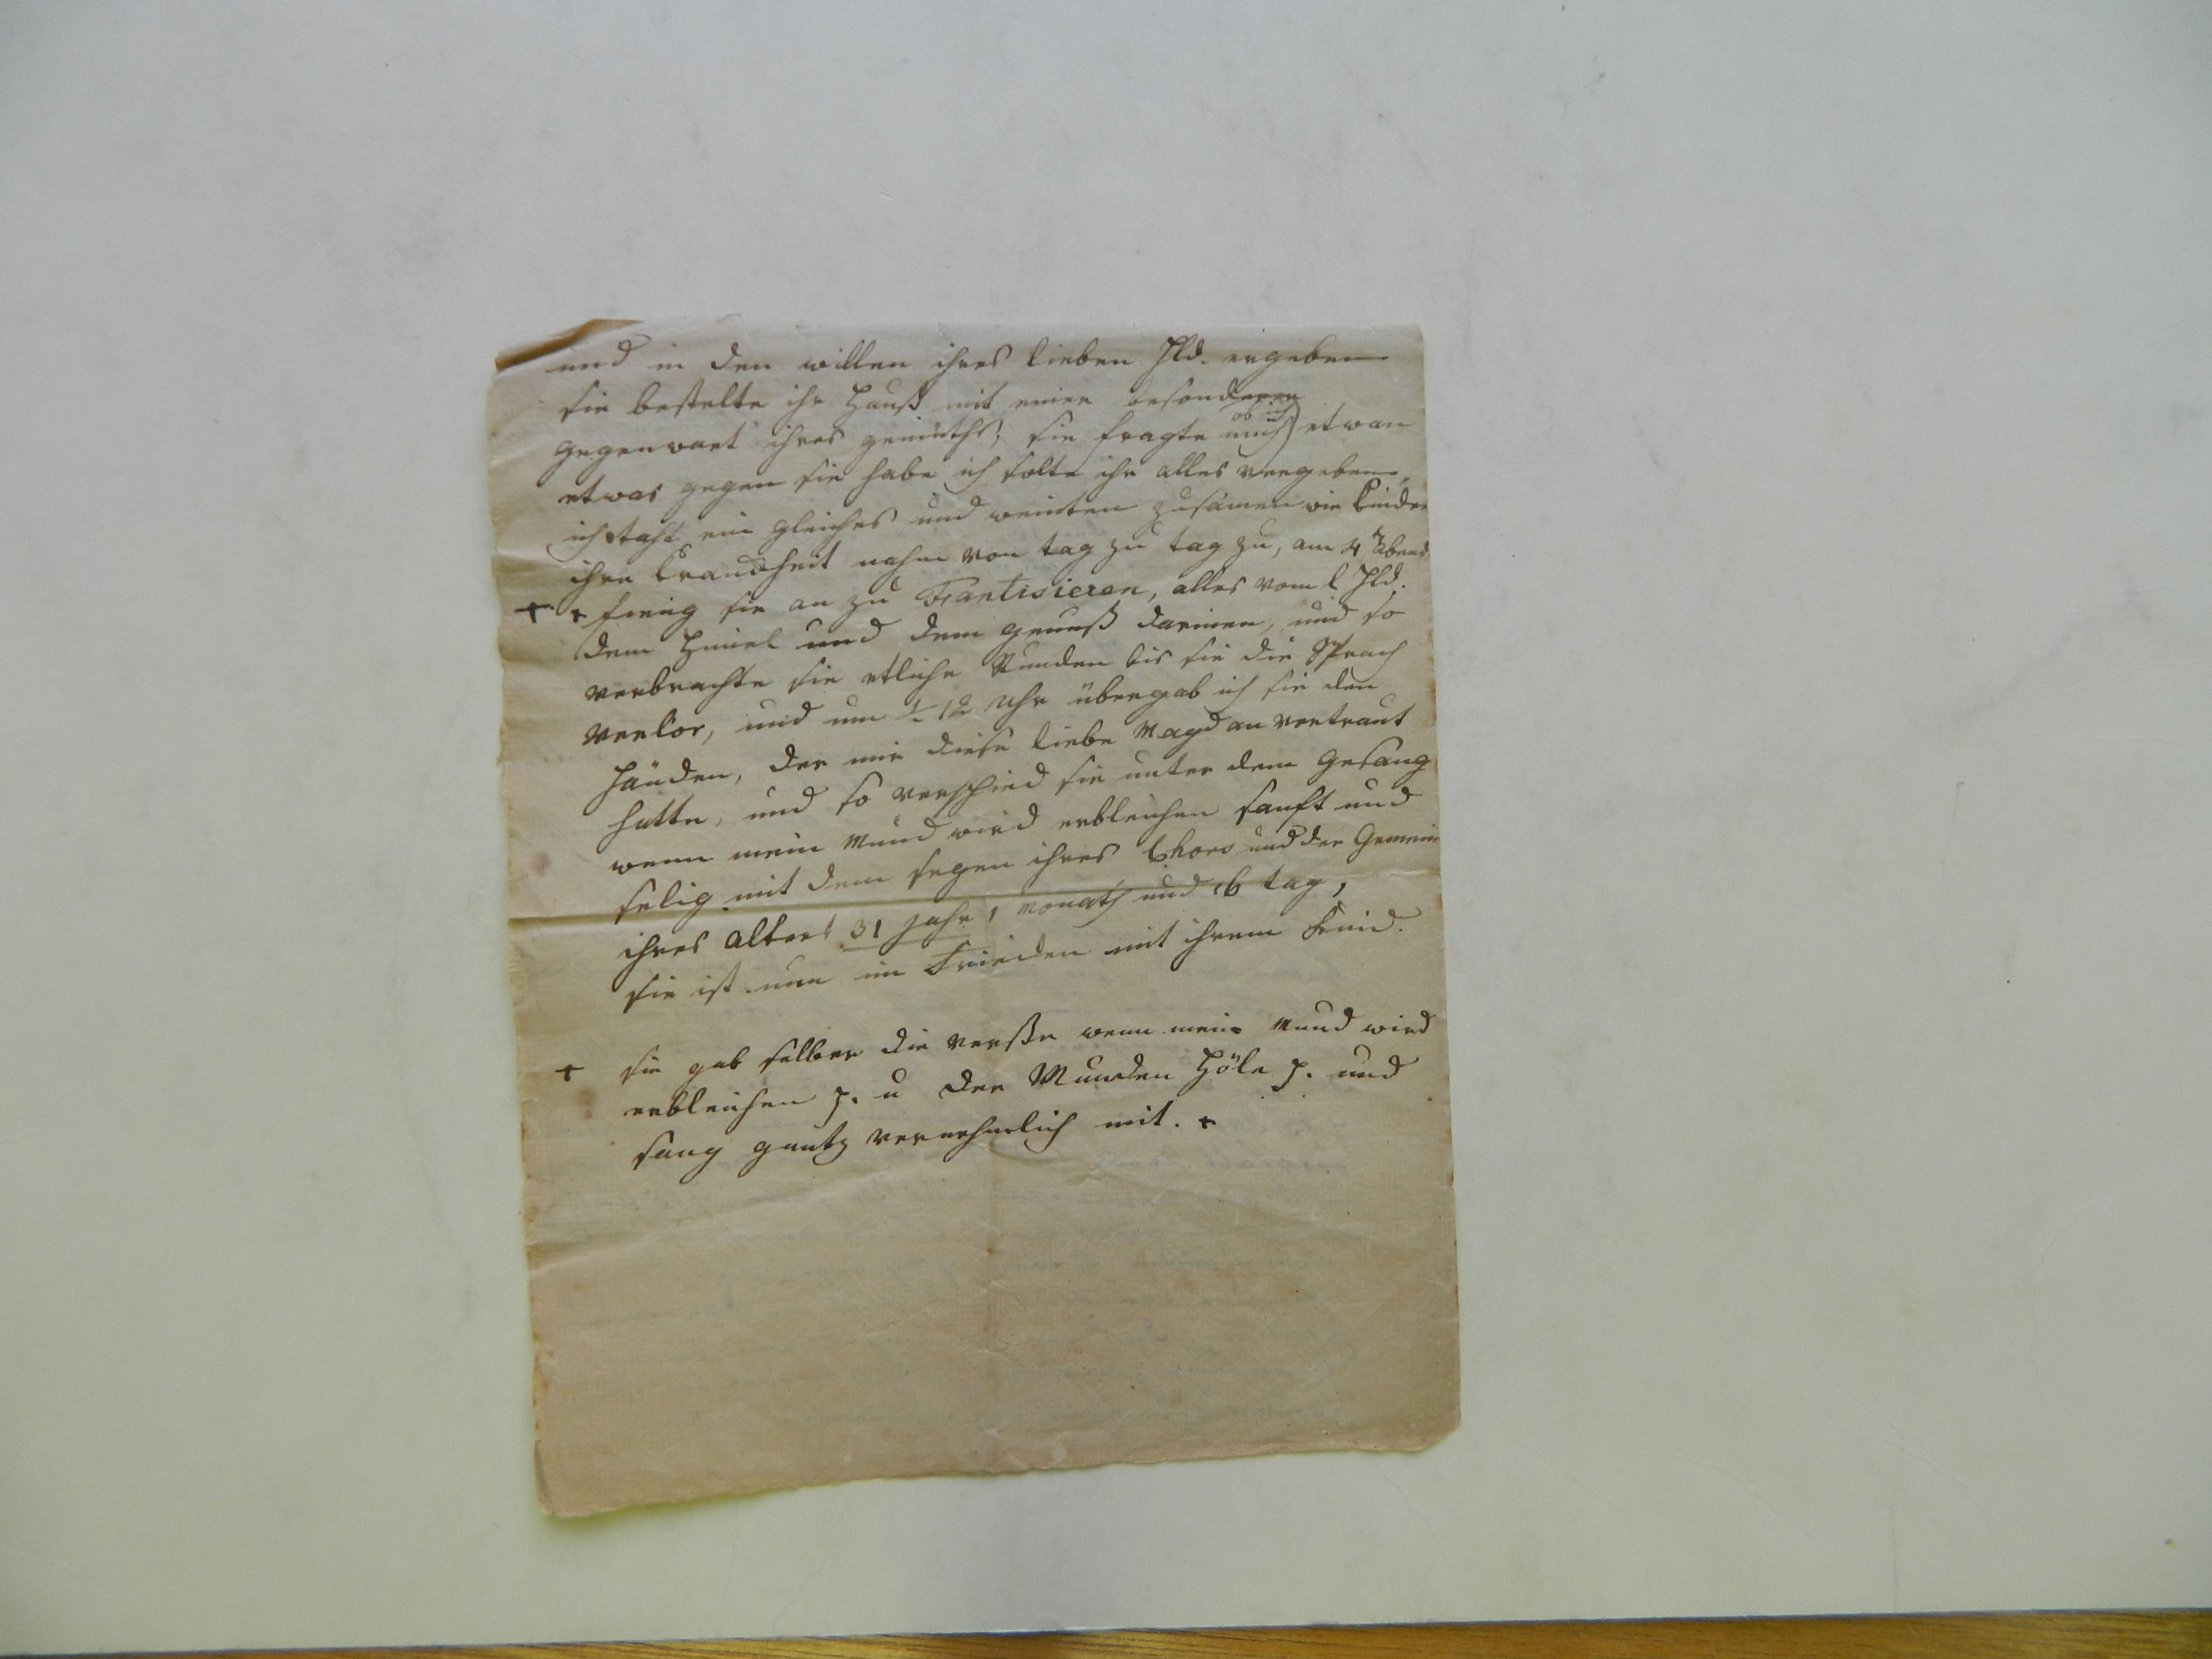 und in den willen ihres lieben Hld. ergeben
sie bestelte ihr Hauß mit einer besonderen
gegenwart ihres gemüths; sie fragte mich ob ich etwan
etwas gegen sie habe ich solte ihr alles vergeben,
ich taht ein gleiches und weinten zusamen wie Kinder
ihre Kranckheit nahm von tag zu tag zu, am 4 t Abend
+ + fieng sie an zu Fantisieren, alles vom l Hld.
dem Himel und dem genuß darinen, und so
verbrachte sie etliche Stunden bis sie die Sprach
verlor, und um ½ 12 Uhr übergab ich sie den
Händen, der mir diese liebe Magd an vertraut
hatte, und so verschied sie unter dem Gesang
wenn mein Mund wird erbleichen sanft und
selig mit dem segen ihres Chors und der Gemein
ihres alters 31 Jahr 1 Monath und 6 tag,
sie ist nun im Frieden mit ihrem
+ sie gab selber die verße wenn mein Mund wird
erbleichen p. u der Wunden Höle p. und
sang gantz vernehmlich mit. +